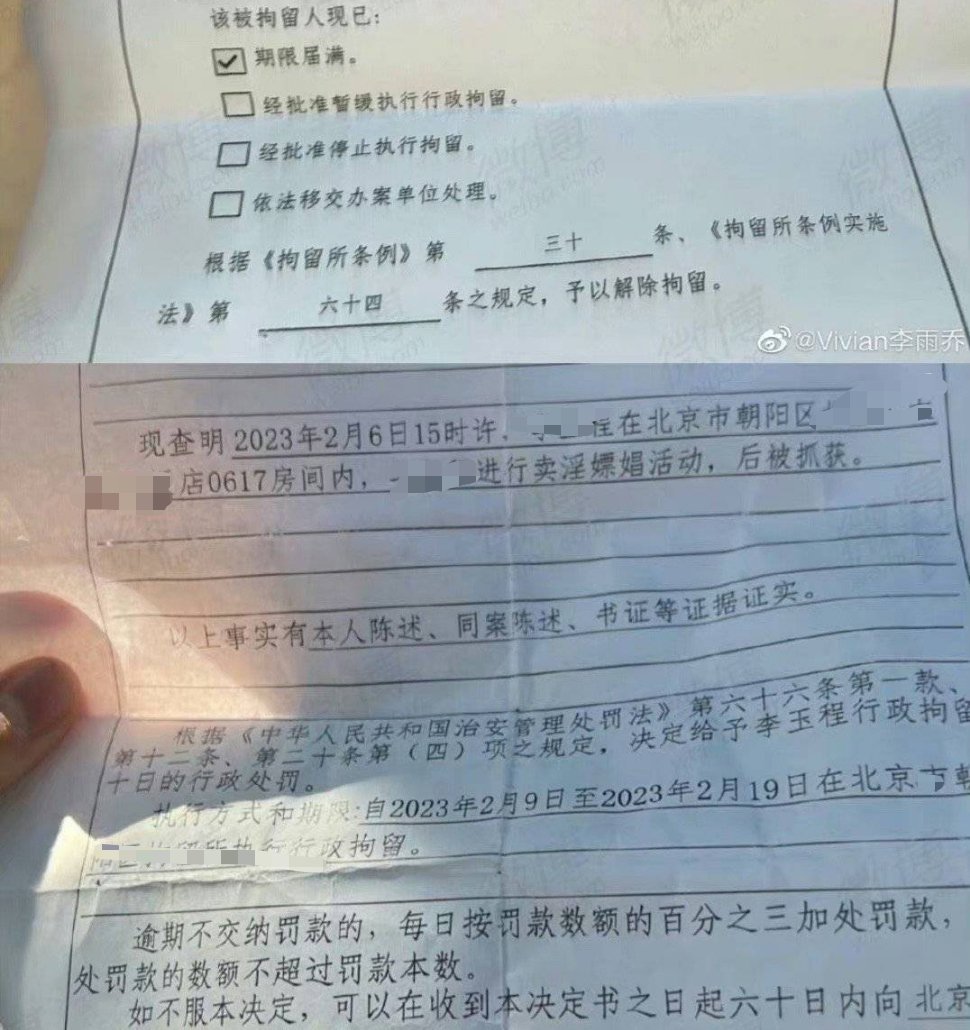 该被拘留人现已:
期限届满。
经批准暂缓执行行政拘留。
经批准停止执行拘留。
依法移交办案单位处理。
根据《拘留所条例》第 三十 条、《拘留所条例实施
法》第 六十四 条之规定,予以解除拘留。
@Vivian李雨乔
现查明2023年2月6日15时许, 程在北京市朝阳区
店0617房间内, 进行卖淫嫖娼活动,后被抓获。
以上事实有本人陈述、同案陈述、书证等证据证实。
根据《中华人民共和国治安管理处罚法》第六十六条第一款、
第十二条、第二十条第(四)项之规定,决定给予李玉程行政拘留
十日的行政处罚。
执行方式和期限:自2023年2月9日至2023年2月19日在北京市朝
所执行行政拘留。
逾期不交纳罚款的,每日按罚款数额的百分之三加处罚款,
处罚款的数额不超过罚款本数。
如不服本决定,可以在收到本决定书之日起六十日内向北京